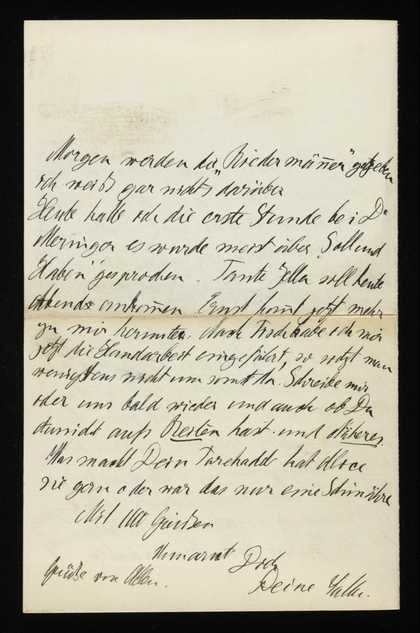 Morgen werden die "Biedermänner" gegeben
ich weiß gar nichts darüber
Heute hatte ich die erste Stunde bei Dr
Meringer es wurde meist über "Soll und
Haben" gesprochen. Tante Jella soll heute
Abends ankommen Ernst kommt jetzt mehr
zu mir herunter. habe ich mir
jetzt die Handarbeit eingeführt, so sitzt man
wenigstens nicht umsonst da. Schreibe mir
oder uns bald wieder und auch ob Du
Aussicht aufs Reiten hast und Näheres
Was macht Dein hat
sie gern oder war das nur eine
Mit 1000 Grüßen
Umarmt Dich
Deine
Grüße von Allen.